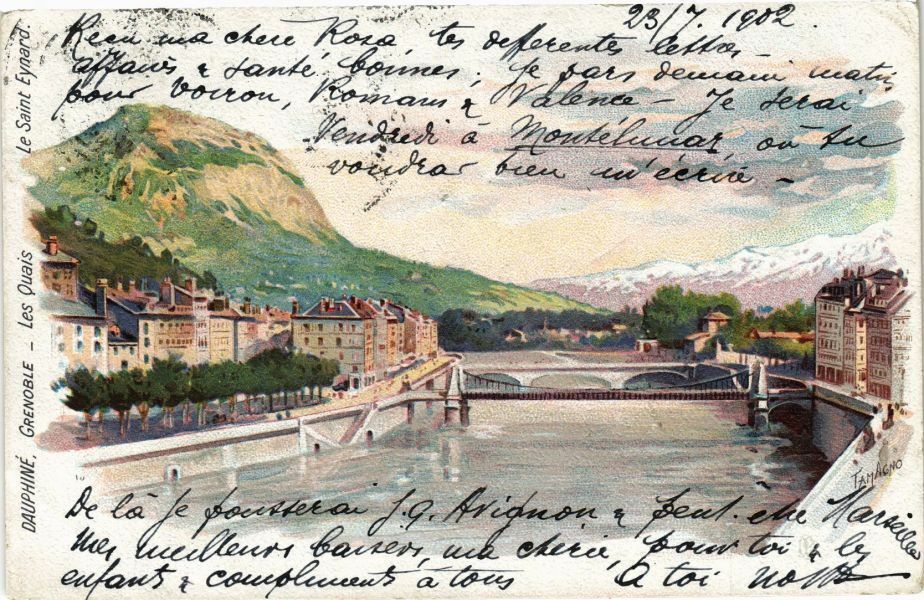 23/7. 1902
Reçu ma chère Rosa, tes differentes lettres -
affaires & santé bonnes, je pars demain matin
pour Voiron, Romans & Valence - Je serai
Vendredi à Montélimar où tu
voudras bien m'écrire -
DAUPHINÉ, GRENOBLE - LES QUAIS Le Saint Eynard.
TAMAGNO
De là je pousserai J.q. Avignon & peut-etre Marseille
Mes meilleurs baisers, ma cherie, pour toi & les
enfants & compliments à tous A toi